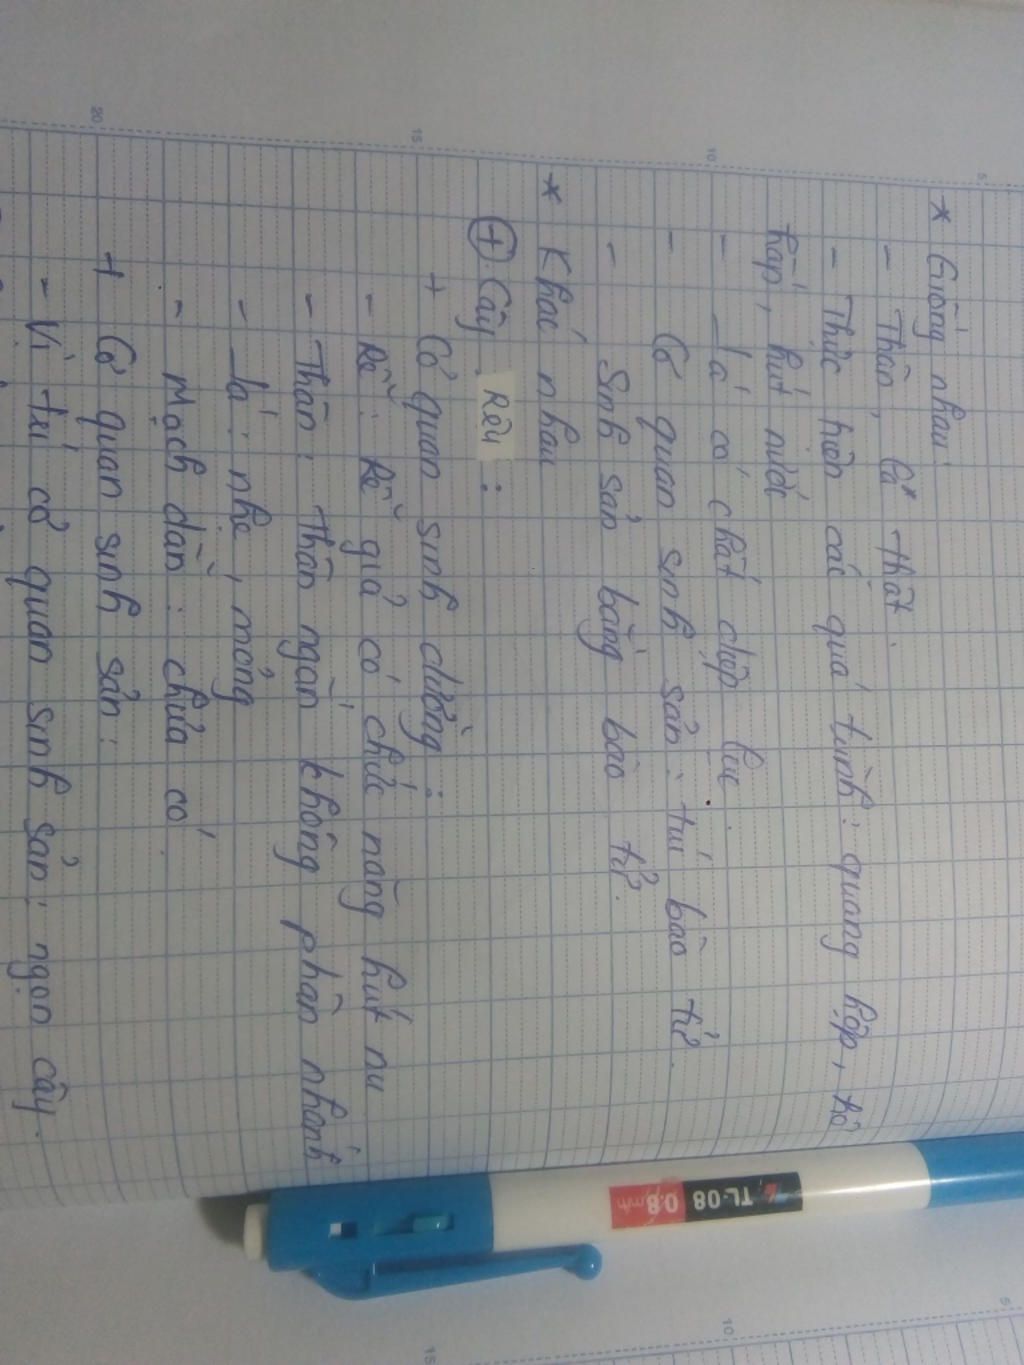 * Giống nhau
- Thân, lá thật.
- Thực hiện các quá trình: quang hợp, hô
hấp, hút nước
- Lá có chất diệp lục.
- Cơ quan sinh sản: túi bào tử.
- Sinh sản bằng bào tử.
* Khác nhau
+ Cây Rêu:
+ Cơ quan sinh dưỡng:
- Rễ: Rễ giả có chức năng hút nư
- Thân: Thân ngắn không phân nhánh
- Lá: nhỏ, mỏng
- Mạch dẫn: chưa có.
+ Cơ quan sinh sản:
- Vị trí cơ quan sinh sản: ngọn cây.
TL-08
0.8
5
10
15
20
5
10
15